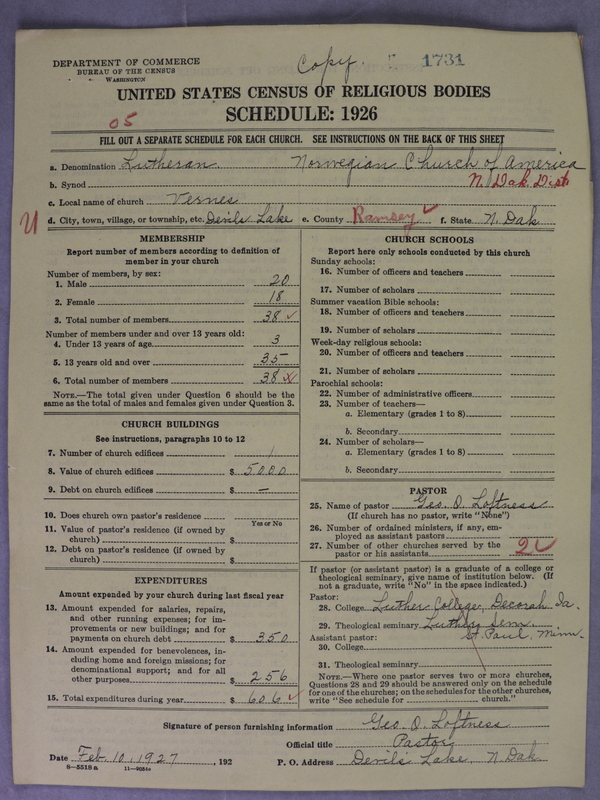 DEPARTMENT OF COMMERCE
BUREAU OF THE CENSUS
WASHINGTON
Copy.
1731
UNITED STATES CENSUS OF RELIGIOUS BODIES
SCHEDULE: 1926
05
FILL OUT A SEPARATE SCHEDULE FOR EACH CHURCH. SEE INSTRUCTIONS ON THE BACK OF THIS SHEET
a. Denomination Lutheran Norwegian Church of America
b. Synod N. Dak. Dist.
c. Local name of church Vernes
U
d. City, town, village, or township, etc. Devils Lake e. County Ramsey f. State N. Dak
MEMBERSHIP
Report number of members according to definition of
member in your church
Number of members, by sex:
1. Male 20
2. Female 18
3. Total number of members 38
Number of members under and over 13 years old:
4. Under 13 years of age 3
5. 13 years old and over 35
6. Total number of members 38
NOTE.—The total given under Question 6 should be the
same as the total of males and females given under Question 3.
CHURCH BUILDINGS
See instructions, paragraphs 10 to 12
7. Number of church edifices 1
8. Value of church edifices $ 5000
9. Debt on church edifices $ —
10. Does church own pastor's residence
Yes or No
11. Value of pastor's residence (if owned by
church) $
12. Debt on pastor's residence (if owned by
church) $
EXPENDITURES
Amount expended by your church during last fiscal year
13. Amount expended for salaries, repairs,
and other running expenses; for im-
provements or new buildings; and for
payments on church debt $ 350
14. Amount expended for benevolences, in-
cluding home and foreign missions; for
denominational support; and for all
other purposes $ 256
15. Total expenditures during year $ 606
CHURCH SCHOOLS
Report here only schools conducted by this church
Sunday schools:
16. Number of officers and teachers
17. Number of scholars
Summer vacation Bible schools:
18. Number of officers and teachers
19. Number of scholars
Week-day religious schools:
20. Number of officers and teachers
21. Number of scholars
Parochial schools:
22. Number of administrative officers
23. Number of teachers—
a. Elementary (grades 1 to 8)
b. Secondary
24. Number of scholars—
a. Elementary (grades 1 to 8)
b. Secondary
PASTOR
25. Name of pastor Geo. O. Loftness
(If church has no pastor, write "None")
26. Number of ordained ministers, if any, em-
ployed as assistant pastors
27. Number of other churches served by the
pastor or his assistants 2
If pastor (or assistant pastor) is a graduate of a college or
theological seminary, give name of institution below. (If
not a graduate, write "No" in the space indicated.)
Pastor:
28. College Luther College, Decorah Ia.
29. Theological seminary Luther Sem.
St. Paul, Minn.
Assistant pastor:
30. College
31. Theological seminary
NOTE.—Where one pastor serves two or more churches,
Questions 28 and 29 should be answered only on the schedule
for one of the churches; on the schedules for the other churches,
write "See schedule for church."
Signature of person furnishing information Geo. O. Loftness
Official title Pastor
Date Feb. 10, 1927, 192 P. O. Address Devils Lake, N. Dak